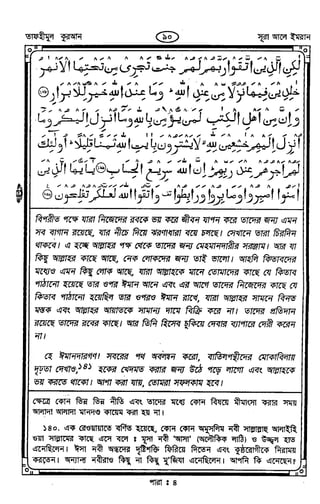 তাফহীমুল কুরআন ৯০ সূরা আলে ইমরান
لٰكِنِ الَّذِيْنَ اتَّقَوْا رَبَّهُمْ لَهُمْ جَنّٰتٌ تَجْرِيْ مِنْ تَحْتِهَا الْاَنْهٰرُ
خٰلِدِيْنَ فِيْهَا نُزُلًا مِّنْ عِنْدِ اللّٰهِ وَمَا عِنْدَ اللّٰهِ خَيْرٌ لِّلْاَبْرَارِ
وَاِنَّ مِنْ اَهْلِ الْكِتٰبِ لَمَنْ يُّؤْمِنُ بِاللّٰهِ وَمَا اُنْزِلَ اِلَيْكُمْ وَمَا
اُنْزِلَ اِلَيْهِمْ خٰشِعِيْنَ لِلّٰهِ لَا يَشْتَرُوْنَ بِاٰيٰتِ اللّٰهِ ثَمَنًا قَلِيْلًا اُولٰٓئِكَ
لَهُمْ اَجْرُهُمْ عِنْدَ رَبِّهِمْ اِنَّ اللّٰهَ سَرِيْعُ الْحِسَابِ يٰٓاَيُّهَا الَّذِيْنَ
اٰمَنُوا اصْبِرُوْا وَصَابِرُوْا وَرَابِطُوْا وَاتَّقُوا اللّٰهَ لَعَلَّكُمْ تُفْلِحُوْنَ
বিপরীত পক্ষে যারা নিজেদের রবকে ভয় করে জীবন যাপন করে তাদের জন্য এমন
সব বাগান রয়েছে, যার নীচে দিয়ে ঝরণাধারা বয়ে চলছে। সেখানে তারা চিরদিন
থাকবে। এ হচ্ছে আল্লাহর পক্ষ থেকে তাদের জন্য মেহমানদারীর সরঞ্জাম। আর যা
কিছু আল্লাহর কাছে আছে, নেক লোকদের জন্য তাই ভালো। আহলি কিতাবদের
মধ্যেও এমন কিছু লোক আছে, যারা আল্লাহকে মানে তোমাদের কাছে যে কিতাব
পাঠানো হয়েছে তার ওপর ঈমান আনে এবং এর আগে তাদের নিজেদের কাছে যে
কিতাব পাঠানো হয়েছিল তার ওপরও ঈমান রাখে, যারা আল্লাহর সামনে বিনত
মস্তক এবং আল্লাহর আয়াতকে সামান্য দামে বিক্রি করে না। তাদের প্রতিদান
রয়েছে তাদের রবের কাছে। আর তিনি হিসেব চুকিয়ে দেবার ব্যাপারে দেরী করেন
না।
হে ঈমানদারগণ! সবরের পথ অবলম্বন করো, বাতিলপন্থীদের মোকাবিলায়
দৃঢ়তা দেখাও,১৪১ হকের খেদমত করার জন্য উঠে পড়ে লাগো এবং আল্লাহকে
ভয় করতে থাকো। আশা করা যায়, তোমরা সফলকাম হবে।
ক্ষেত্রে কোন ভিন্ন ভিন্ন নীতি এবং তাদের মধ্যে কোন বিষয়ে মীমাংসা করার সময়
আলাদা আলাদা মানদণ্ড কায়েম করা হয় না।
১৪০. এক রেওয়ায়াতে বর্ণিত হয়েছে, কোন কোন অমুসলিম নবী সাল্লাল্লাহু আলাইহি
ওয়া সাল্লামের কাছে এসে বলে : মূসা নবী 'আসা' (অলৌকিক লাঠি) ও উজ্জ্বল হাত
এনেছিলেন। ঈসা নবী অন্ধদের দৃষ্টিশক্তি ফিরিয়ে দিতেন এবং কুষ্ঠরোগীকে নিরাময়
করতেন। অন্যান্য নবীরাও কিছু না কিছু মু'জিযা এনেছিলেন। আপনি কি এনেছেন?
পারা : ৪